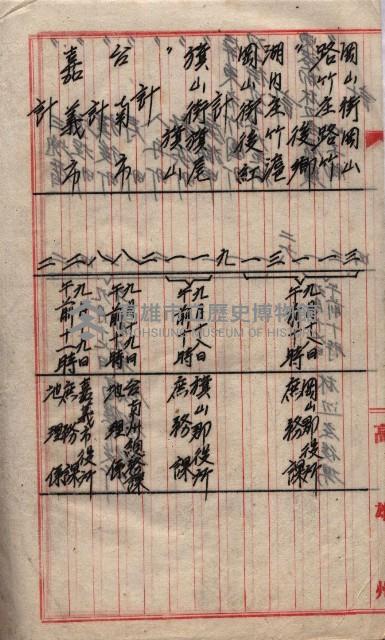 岡山街岡山 三
路竹庄路竹 一
〃 後鄉 一
湖内庄竹滬 三
岡山街後紅 一
計 九
旗山街旗尾 一
〃 旗山 一
計 二
台南市 八
計 八
嘉義市 二
計 二
九月十八日
午前十時
岡山郡役所
庶務課
九月十八日
午前十時
旗山郡役所
庶務課
九月十九日
午前十時
台南州總務課
地理係
九月九日
午前十一時
嘉義市役所
庶務課
地理係
高雄州
高雄市立歷史博物館
KAOHSIUNG MUSEUM OF HISTORY